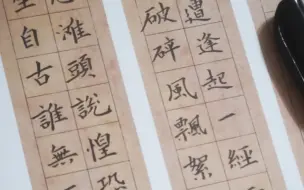 遭逢起一經
破碎風飄絮
滩頭說惶恐
生自古誰無